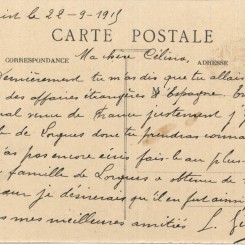 le 22-9-1915
CARTE POSTALE
CORRESPONDANCE Ma chère Célina, ADRESSE
Dernièrement tu m'as dis que tu allais
des affaires étrangères d'Espagne.
renue de France justement j'y
de Lorgues dont tu prendras
as pas encore écris fais-le au plus
famille de Lorgues a obtenu de
je désirerais qu'il en fut ainsi
mes meilleures amitiés L.